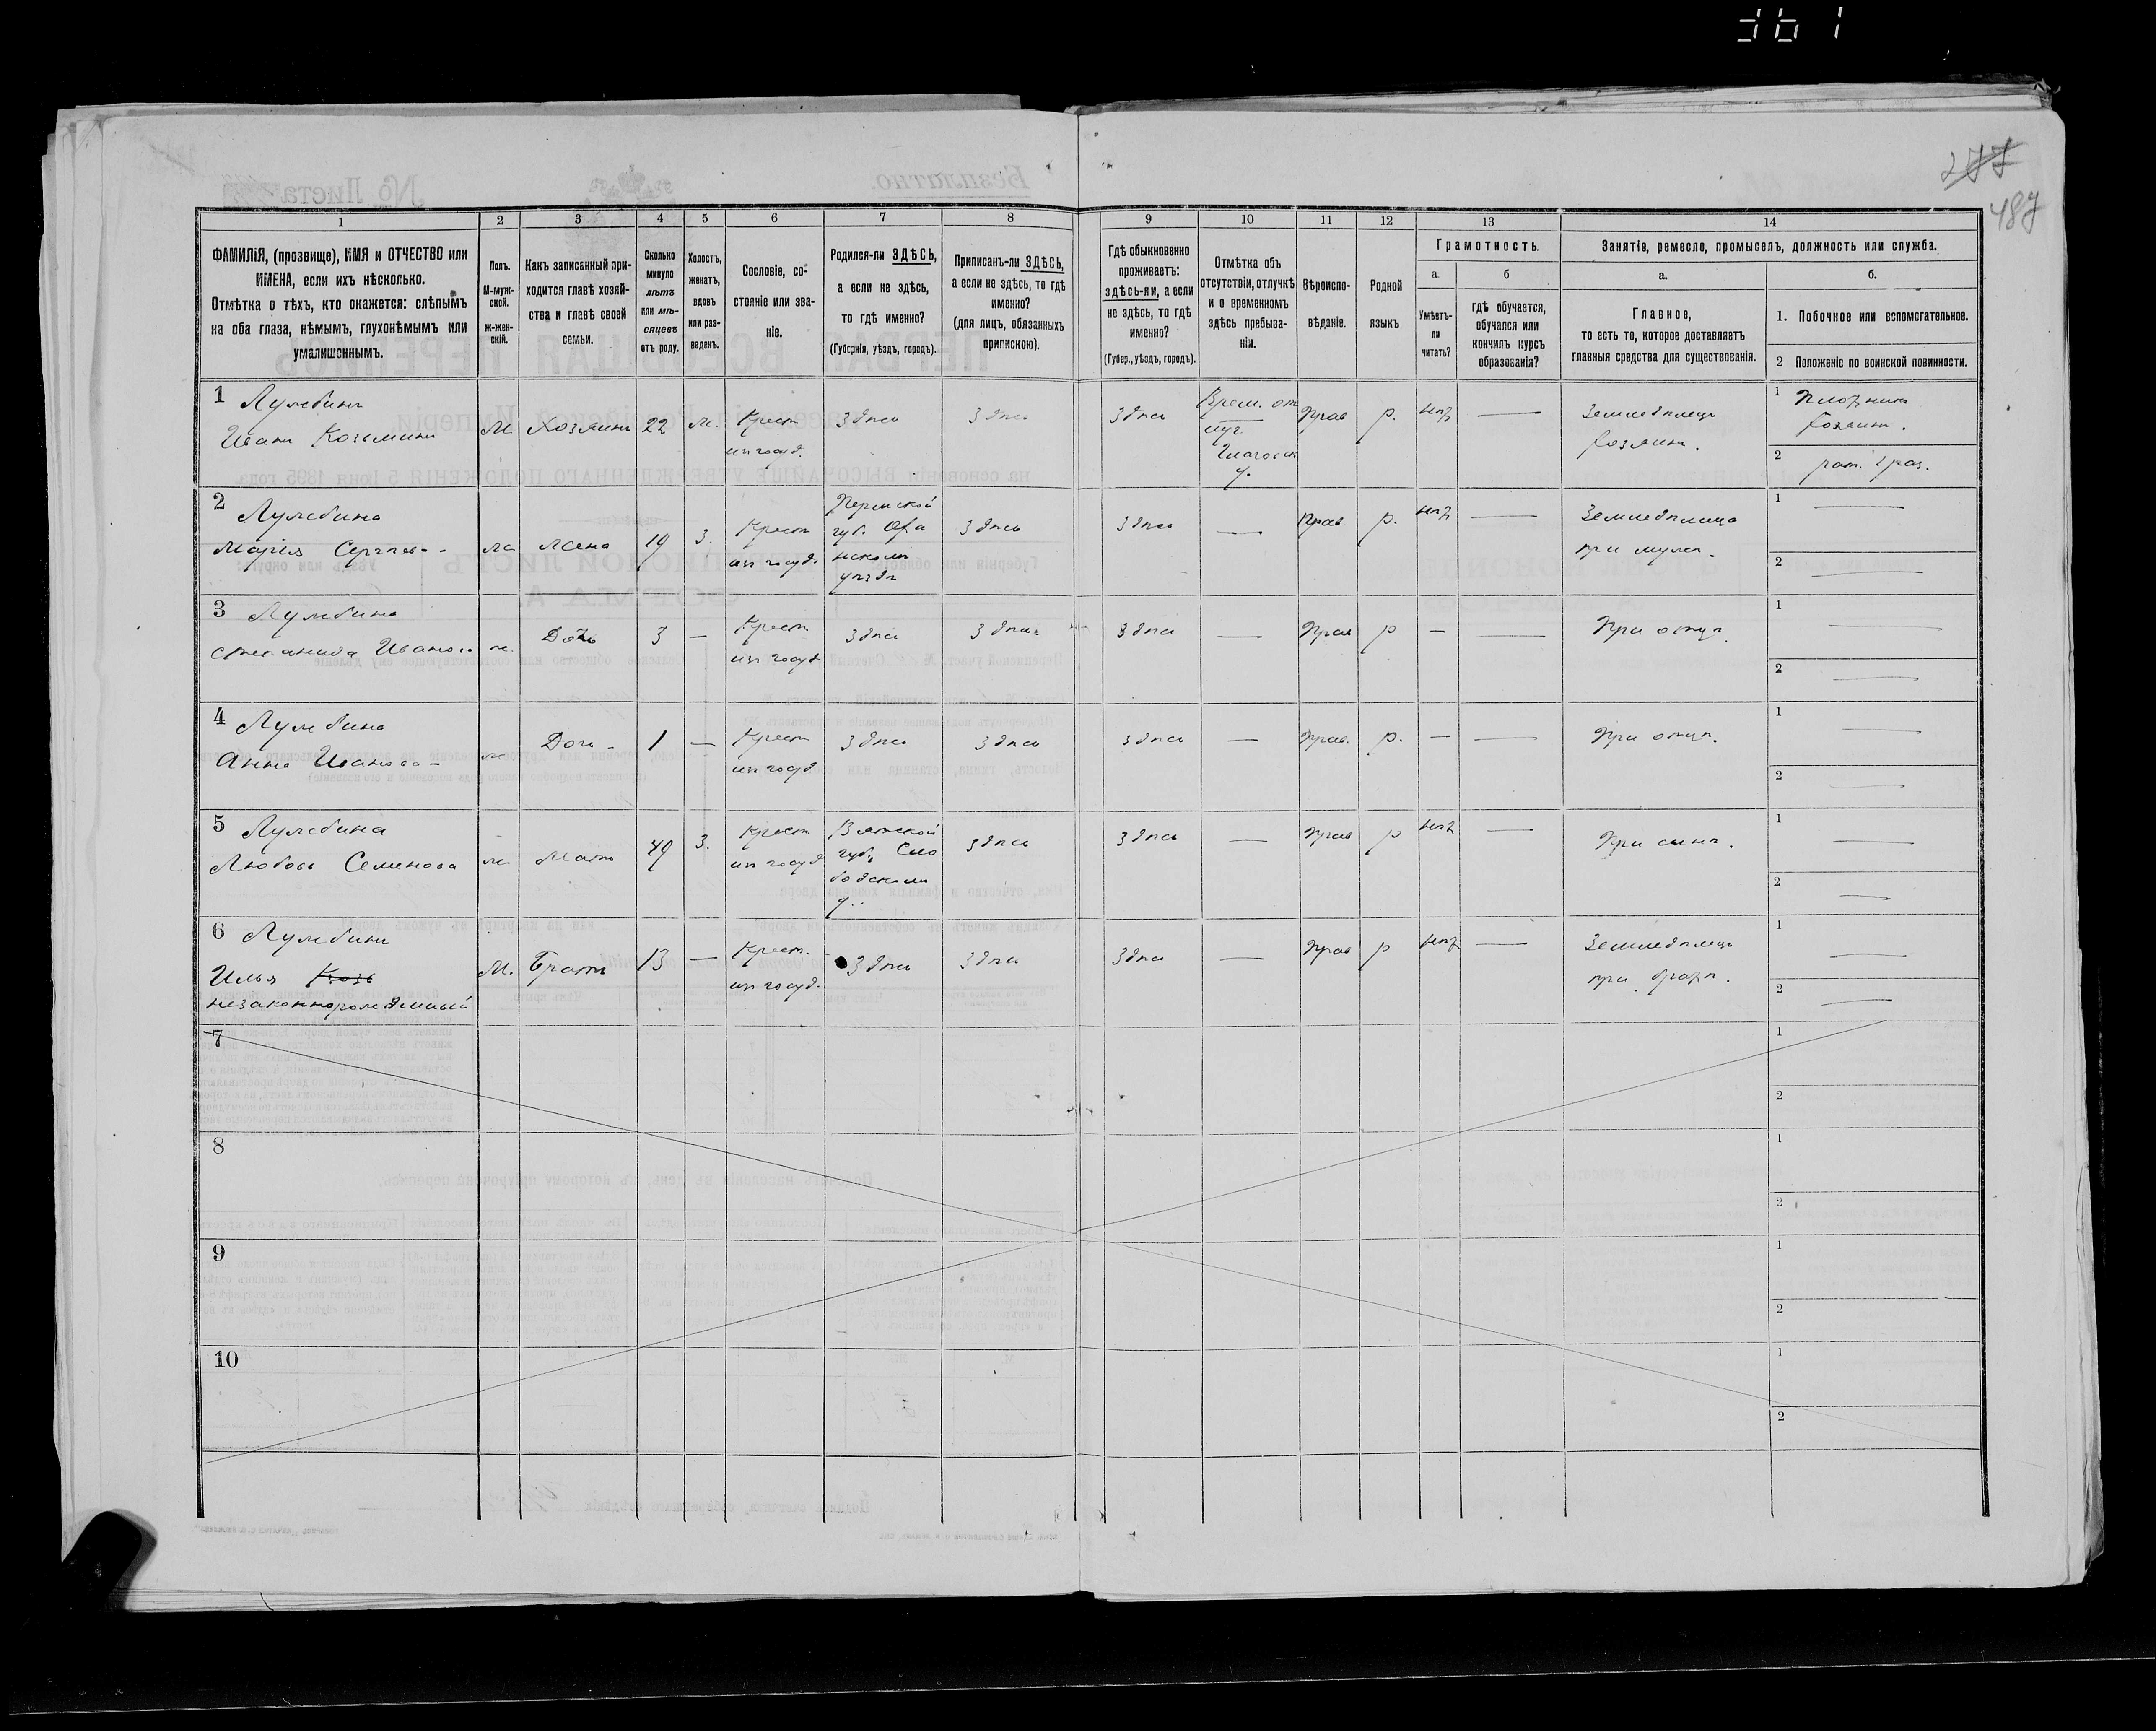 361
277
487
1
2
3
4
5
6
7
8
9
10
11
12
13
14
ФАМИЛІЯ, (прозвище), ИМЯ и ОТЧЕСТВО или
ИМЕНА, если ихъ нѣсколько.
Отмѣтка о тѣхъ, кто окажется: слѣпымъ
на оба глаза, нѣмымъ, глухонѣмымъ или
умалишоннымъ.
Полъ.
М-муж-
ской.
ж-жен-
скій.
Какъ записанный при-
ходится главѣ хозяй-
ства и главѣ своей
семьи.
Сколько
минуло
лѣтъ
или мѣ-
сяцевъ
отъ роду.
Холостъ,
женатъ,
вдовъ
или раз-
веденъ.
Сословіе, со-
стояніе или зва-
ніе.
Родился-ли ЗДѢСЬ,
а если не здѣсь,
то гдѣ именно?
(Губернія, уѣздъ, городъ).
Приписанъ-ли ЗДѢСЬ,
а если не здѣсь, то гдѣ
именно?
(для лицъ, обязанныхъ
припискою).
Гдѣ обыкновенно
проживаетъ:
здѣсь-ли, а если
не здѣсь, то гдѣ
именно?
(Губер., уѣздъ, городъ).
Отмѣтка объ
отсутствіи, отлучкѣ
и о временномъ
здѣсь пребыва-
ніи.
Вѣроиспо-
вѣданіе.
Родной
языкъ
Грамотность.
а.
б
Умѣетъ-
ли
читать?
гдѣ обучается,
обучался или
кончилъ курсъ
образованія?
Занятіе, ремесло, промыселъ, должность или служба.
а.
б.
Главное,
то есть то, которое доставляетъ
главныя средства для существованія.
1. Побочное или вспомогательное.
2 Положеніе по воинской повинности.
1 Лумбинъ
Иванъ Козьминъ
М.
Хозяинъ
22
ж.
Крест
изъ госуд.
Здѣсь
Здѣсь
Здѣсь
Врем. от
Прав
р.
нѣтъ
—
Земледѣлецъ
хозяинъ.
1 Плотникъ
хозяинъ.
2 рат. 2 раз.
2
Марія Сергѣев-
ж
Жена
19
З.
Крест
изъ госуд.
Пермской
губ. Оха
нскаго
уѣзда
Здѣсь
Здѣсь
—
Прав.
р.
нѣтъ
—
Земледѣлица
при мужѣ.
1 —
2 —
3
Степанида Иванов
ж.
Дочь
3
—
Крест
изъ госуд
Здѣсь
Здѣсь
Здѣсь
—
Прав
р
—
—
При отцѣ.
1 —
2 —
4
Анна Иванова -
ж
Дочь -
1
—
Крест
изъ госуд
Здѣсь
Здѣсь
Здѣсь
—
Прав.
р.
—
—
При отцѣ.
1 —
2 —
5
Любовь Семенова
ж
Мать
49
З.
Крест
изъ госуд
Вятской
губ. Сло
бодскаго
у.
Здѣсь
Здѣсь
—
Прав
р
нѣтъ
—
При сынѣ.
1 —
2 —
6
Илья Козь
незаконнорожденный
М.
Братъ
13
—
Крест.
изъ госуд.
Здѣсь
Здѣсь
Здѣсь
—
Прав
р
нѣтъ
—
Земледѣлецъ
при братѣ.
1 —
2 —
7
1
2
8
1
2
9
1
2
10
1
2